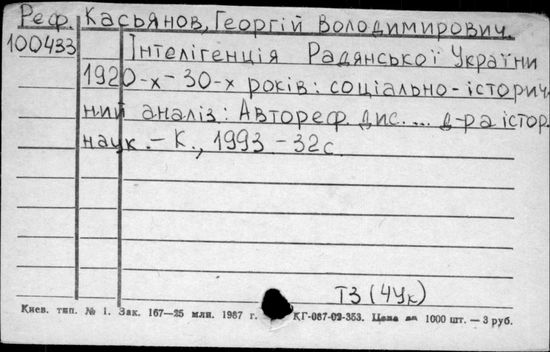 Реф. Касьянов, Георгій Володимирович.
100433 Інтелігенція Радянської України
1920-х-30-х років: соціально-історич-
ний аналіз: Автореф. дис. ... д-ра істор.
наук. - К., 1993 - 32с.
Т3(4Ук)
Киев. тип. № 1. Зак. 167—25 млн. 1987 г. КГ-087-02-353. Цена за 1000 шт. — 3 руб.